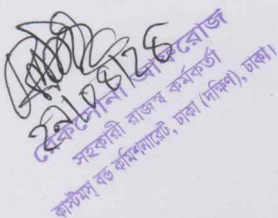 ২৯/০৪/২৪
আফরোজ
সহকারী রাজস্ব কর্মকর্তা
কাস্টমস্ বন্ড কমিশনারেট, ঢাকা (দক্ষিণ), ঢাকা।